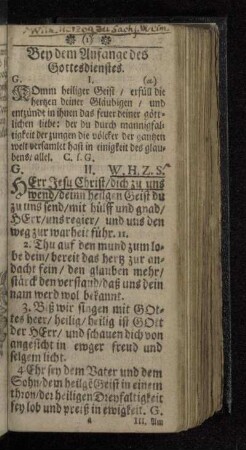 (1)
Bey dem Anfange des
Gottesdienstes.
G. I. (a)
KOmm heiliger Geist / erfüll die
hertzen deiner Gläubigen / und
entzünde in ihnen das feuer deiner gött-
lichen liebe: der du durch mannigfal-
tigkeit der zungen die völcker der gantzen
welt versamlet hast in einigkeit des glau-
bens / allel. C. f. G.
G. II. W. H. Z. S.
HErr Jesu Christ / dich zu uns
wend / deinn heilgen Geist du
zu uns send / mit hülff und gnad /
HErr / uns regier / und uns den
weg zur warheit führ. ıı.
2. Thu auf den mund zum lo-
be dein / bereit das hertz zur an-
dacht fein / den glauben mehr /
stärck den verstand / daß uns dein
nam werd wol bekannt.
3. Biß wir singen mit GOt-
tes heer / heilig / heilig ist GOtt
der HErr / und schauen dich von
angesicht in ewger freud und
selgem licht.
4 Ehr sey dem Vater und dem
Sohn / dem heilgē Geist in einem
thron / der heiligen Dreyfaltigkeit
sey lob und preiß in ewigkeit. G.
III. Am